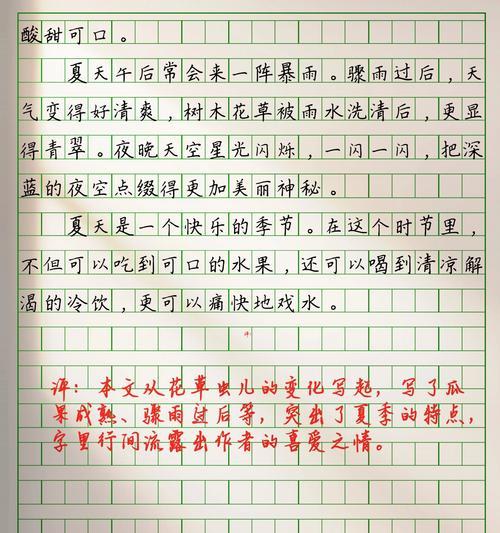 酸甜可口。
夏天午后常会来一阵暴雨。骤雨过后，天
气变得好清爽，树木花草被雨水洗清后，更显
得青翠。夜晚天空星光闪烁，一闪一闪，把深
蓝的夜空点缀得更加美丽神秘。
夏天是一个快乐的季节。在这个时节里，
不但可以吃到可口的水果，还可以喝到清凉解
渴的冷饮，更可以痛快地戏水。
评：本文从花草虫儿的变化写起，写了瓜
果成熟、骤雨过后等，突出了夏季的特点，
字里行间流露出作者的喜爱之情。